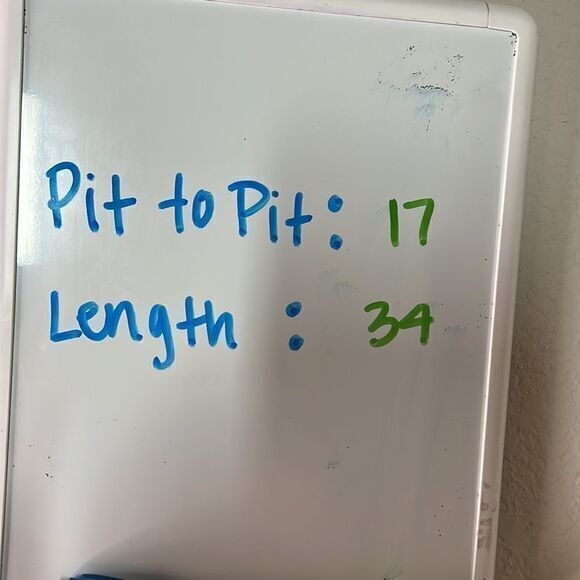 Pit to Pit: 17
Length : 34